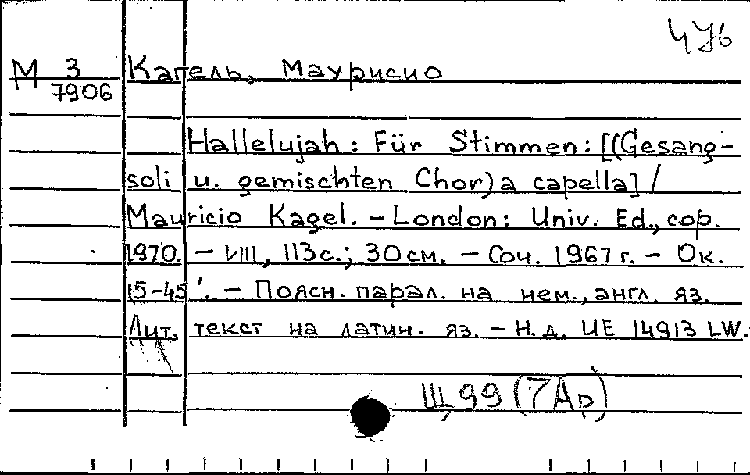 476
М 3 Кагель, Маурисио
7906
Hallelujah: Für Stimmen: [(Gesang-
soli u. gemischten Chor) a capella] /
Mauricio Kagel. – London: Univ. Ed., cop.
1970. – VIII, 113 с.; 30 см. – Соч. 1967 г. – Ок.
15-45'. – Поясн. парал. на нем., англ. яз.
Лит. текст на латин. яз. – Н.д. UE 14913 LW.
Щ 99 (7Ар)